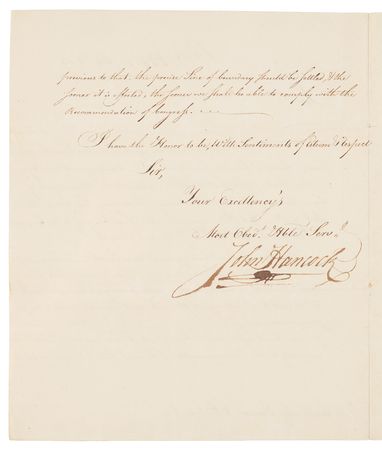 previous to that the precise Line of boundary should be settled, & the
sooner it is effected, the sooner we shall be able to comply with the
Recommendation of Congress.
I have the Honor to be, With Sentiments of Esteem & Respect
Sir,
Your Excellency's
Most Obedt. & Hble Servt.
John Hancock